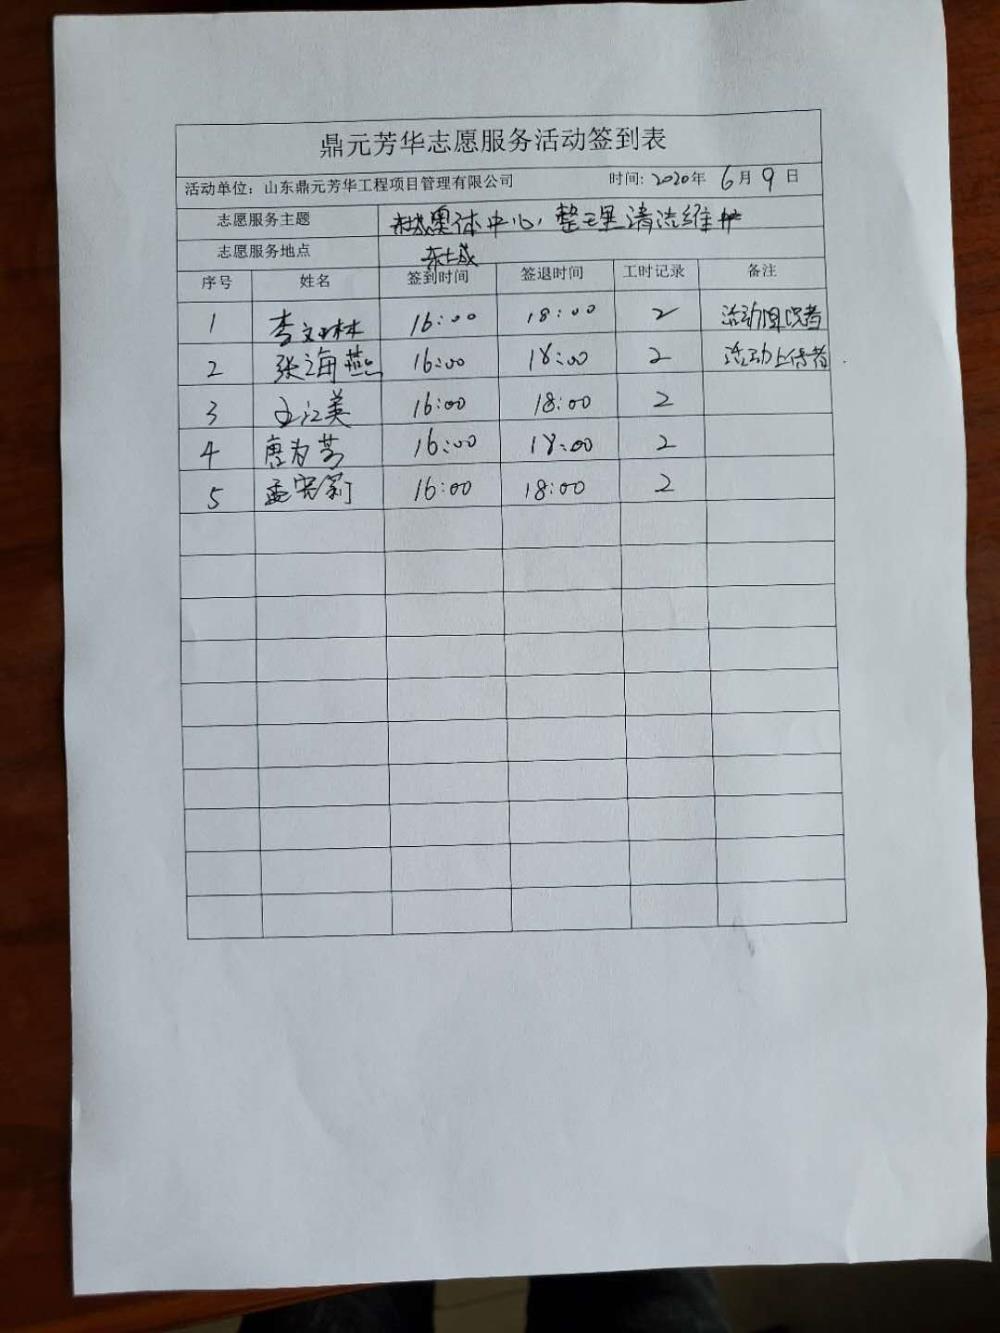 鼎元芳华志愿服务活动签到表
活动单位：山东鼎元芳华工程项目管理有限公司 时间：2020年 6月 9日
志愿服务主题 奥体中心，整理清洁维护
志愿服务地点 东城
序号 姓名 签到时间 签退时间 工时记录 备注
1 李文林 16:00 18:00 2 活动组织者
2 张海燕 16:00 18:00 2 活动上传者
3 江美 16:00 18:00 2
4 唐为芳 16:00 18:00 2
5 孟宪莉 16:00 18:00 2